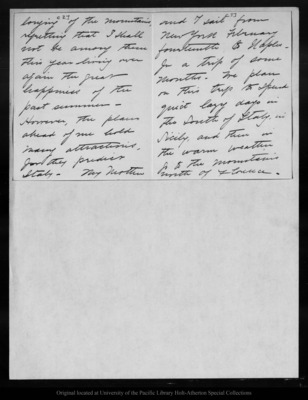 longing of the mountains,
regretting that I shall
not be among them
this year living over
again the great
happiness of the
past summer -
However, the plans
ahead of me hold
many attractions.
for they predict
Italy - My Mother
and I sail from
New York February
fourteenth to Naples -
for a trip of some
months. We plan
on this trip to spend
quiet lazy days in
the South of Italy, in
Sicily, and then in
the warm weather
to the mountains
north of Florence -
Original located at University of the Pacific Library Holt-Atherton Special Collections